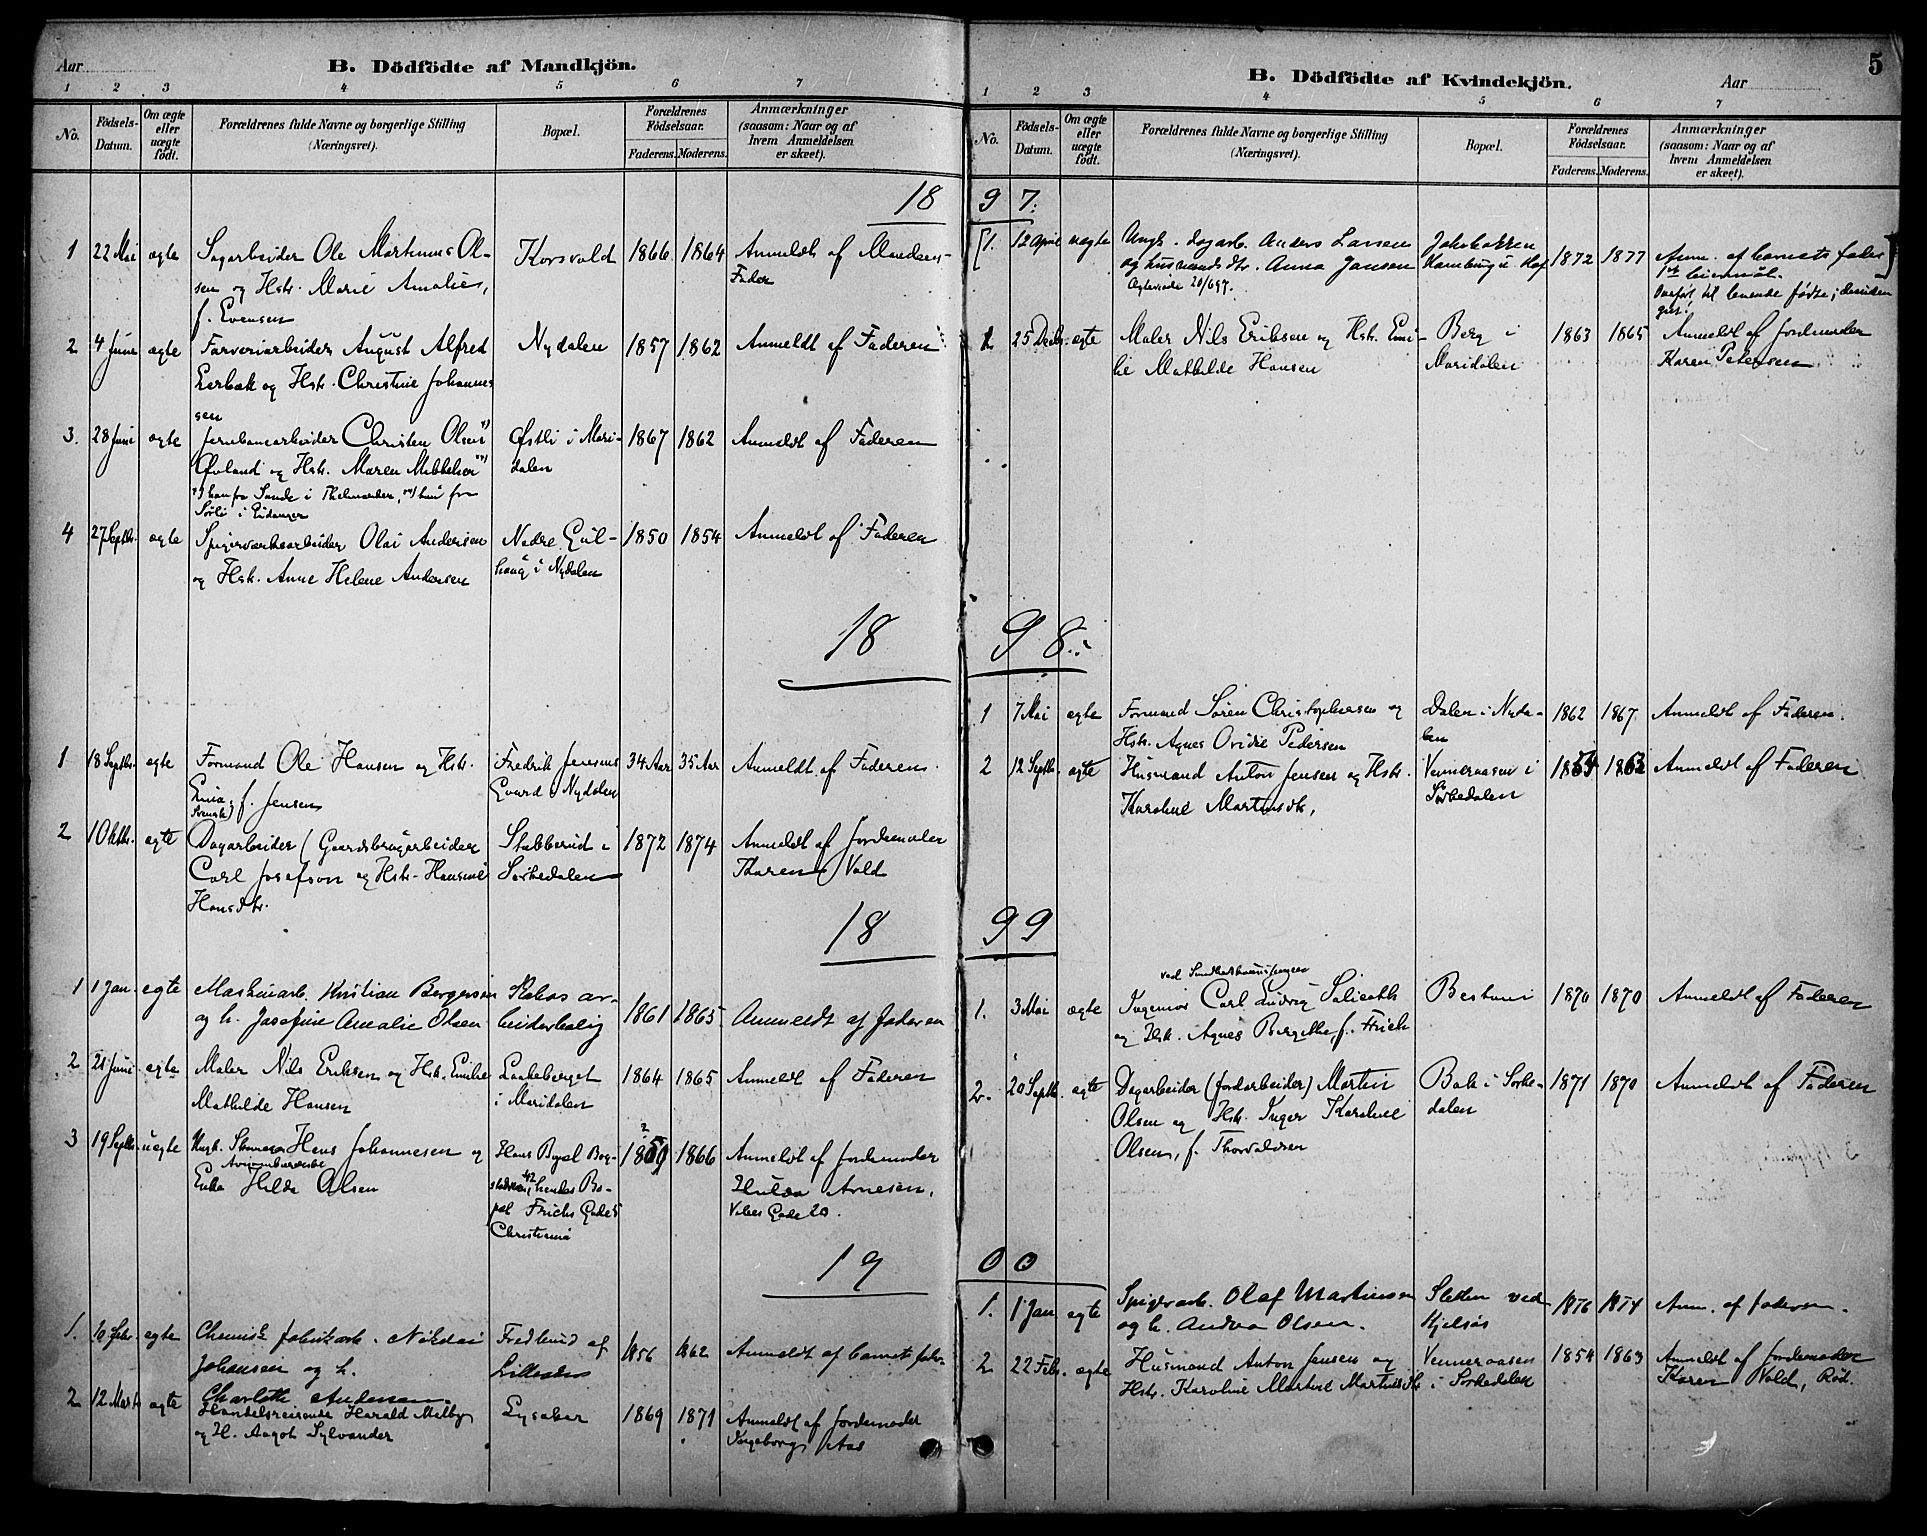 Aar
B. Dödfödte af Mandkjön.
1 2 3 4 5 6 7
No.
Födsels-
Datum.
Om ægte
eller
uægte
födt.
Forældrenes fulde Navne og borgerlige Stilling
(Næringsvei).
Bopæl.
Forældrenes
Födselsaar.
Faderens. Moderens.
Anmærkninger
(saasom: Naar og af
hvem Anmeldelsen
er skeet).
18
1 22 Mai ægte Sagarbeider Ole Martinius Ol- Korsvold 1866 1864 Anmeldt af
sen og Hstr. Marie Amalie, Fader
f. Evensen
2 4 Juni ægte Farveriarbeider August Alfred Nydalen 1857 1862 Anmeldt af Faderen
Lerbak og Hstr. Christine Johannes
sen
3. 28 Juni ægte Jernbanearbeider Christen Olsen Østli i Mari- 1867 1862 Anmeldt af Faderen
Øvland og Hstr. Maren Mikkelsen dalen
han fra Sande i Thelemarken, hun fra
i Eidanger
4 27 Septbr. ægte Spigerværksarbeider Olai Andersen Nedre Gul- 1850 1854 Anmeldt af Faderen
og Hstr. Anne Helene Andersen haug i Nydalen
18
1 18 Septbr. ægte Formand Ole Hansen og Hstr. Fredrik Jensens 34 Aar 35 Aar Anmeldt af Faderen
f. Jensen Gaard i Nydalen
Svensk)
2 1 Oktbr. ægte Dagarbeider (Gaardsbrugarbeider Stubberud i 1872 1874 Anmeldt af Jordemoder
Carl Josefson og Hstr. Hansine Sørkedalen Karen Vold
Hansdtr.
18
1 1 Jan. egte Maskinarb. Kristian Bergersen ar- 1861 1865 Anmeldt af faderen
og h. Josefine Amalie Olsen beiderbolig
2 21 Juni egte Maler Nils Eriksen og Hstr. Emilie Laakeberget 1864 1865 Anmeldt af Faderen
Mathilde Hansen i Maridalen
3 19 Septbr. uægte Ungk. Hans Johannesen og Hans Bopæl Bog- 1859 1866 Anmeldt af Jordemoder
Enke Hilda Olsen hendes Bo- Hulda Arnesen,
pæl Frichs Gade 5 Gade 20.
Christiania
19
1. 10 Febr. egte Chemisk fabrikarb. Nikolai Fredlund af 1856 1862 Anmeldt af barnets fader
Johansen og h. Lilleaker
Charlotte Andersen.
2 12 Marts ægte Handelsreisende Harald Melby Lysaker 1869 1871 Anmeldt af Jordemoder
og H. Aagot Sylvander Ingeborg Aas
5
B. Dödfödte af Kvindekjön.
Aar
1 2 3 4 5 6 7
No.
Födsels-
Datum.
Om ægte
eller
uægte
födt.
Forældrenes fulde Navne og borgerlige Stilling
(Næringsvei).
Bopæl.
Forældrenes
Födselsaar.
Faderens. Moderens.
Anmærkninger
(saasom: Naar og af
hvem Anmeldelsen
er skeet).
97.
[1. 12 April uægte Ungk. dagarb. Anders Larsen 1872 1877 Anm. af barnets fader]
og husmandsdtr. Anna Jansen 1ste leiermål.
Ægteviede 20/6 97. Overført til levende fødte;
1 25 Decbr. ægte Maler Nils Eriksen og Hstr. Emi- Berg i 1863 1865 Anmeldt af Jordemoder
lie Mathilde Hansen Maridalen Karen Petersen
98.
1 7 Mai ægte Formand Søren Christophersen og Dalen i Nyda- 1862 1867. Anmeldt af Faderen.
Hstr. Agnes Ovidie Pedersen len
2 12 Septbr. ægte Husmand Anton Jensen og Hstr. Venneraasen i 1854 1863 Anmeldt af Faderen
Karoline Martinsdtr., Sørkedalen
99
ved
1. 3 Mai ægte Ingeniør Carl Ludvig Bestum 1870 1870 Anmeldt af Faderen
og Hstr. Agnes Bergitte, f. Frich
2. 20 Septbr. egte Dagarbeider (Jordarbeider) Martin Bak i Sørke- 1871 1870 Anmeldt af Faderen
Olsen og Hstr. Inger Karoline dalen
Olsen, f. Thorvaldsen
00
1. 1 Jan egte Spigerarb. Olaf Martinsen Sletten ved 1876 1874 Anm. af faderen.
og h. Andrea Olsen. Kjelsås
2. 22 Febr. ægte Husmand Anton Jensen og Venneraasen 1854 1863 Anmeldt af Jordemoder
Hstr. Karoline Martine Martinsdtr i Sørkedalen Karen Vold, Rød.